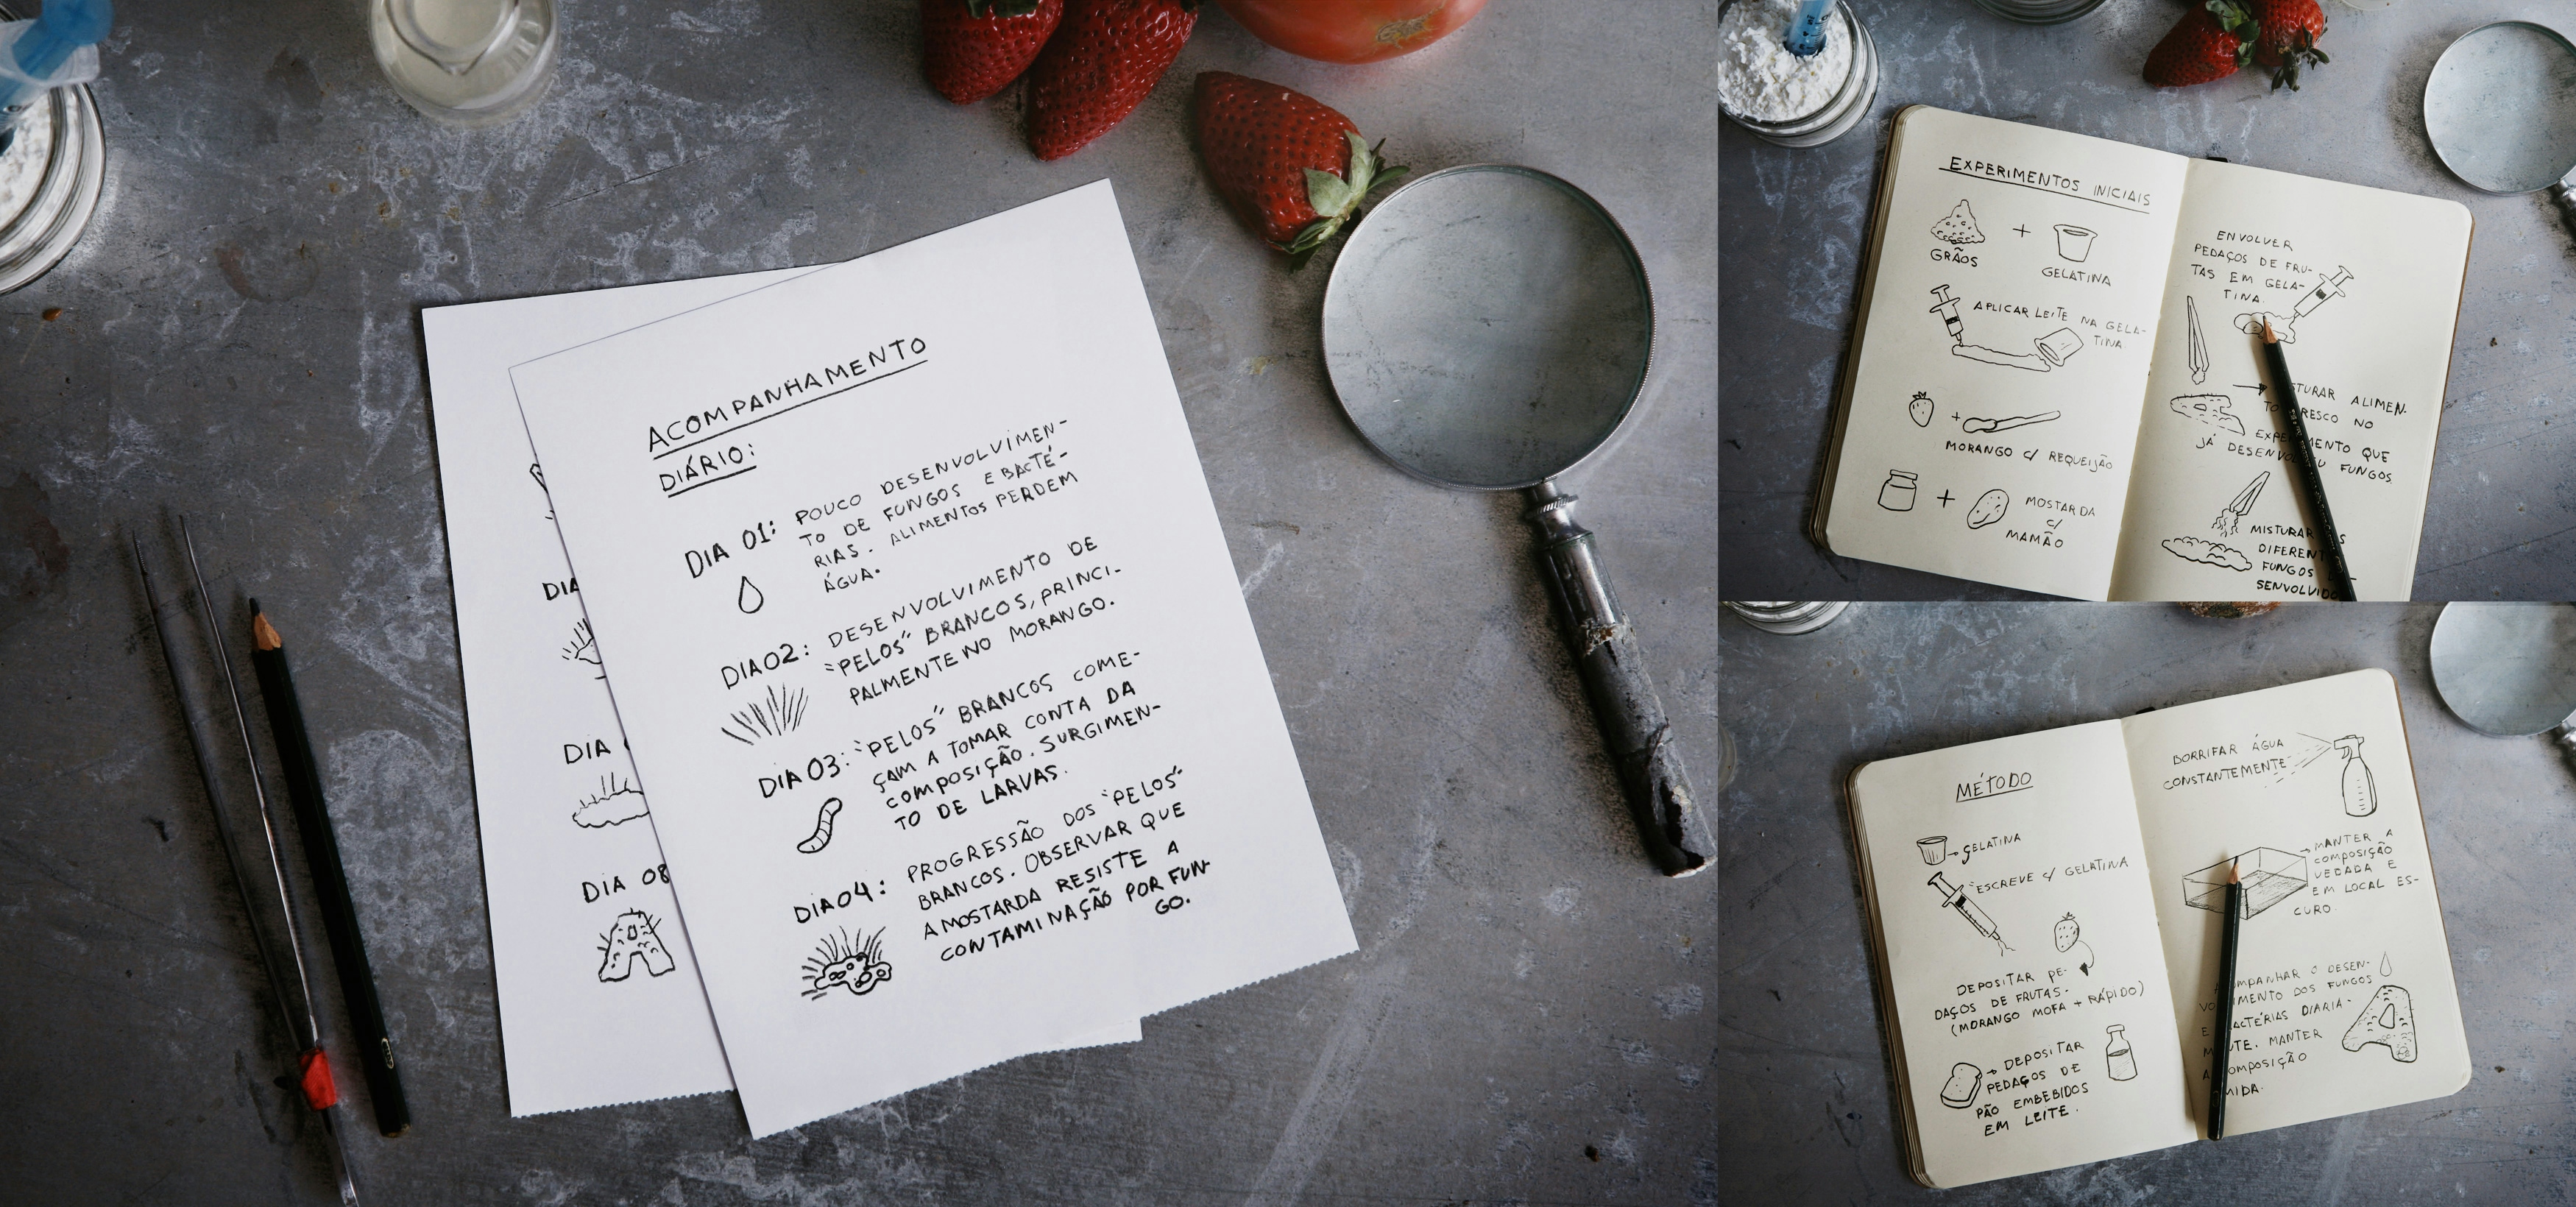 ACOMPANHAMENTO
DIÁRIO:
DIA 01:
POUCO DESENVOLVIMEN-
TO DE FUNGOS E BACTÉ-
RIAS. ALIMENTOS PERDEM
ÁGUA.
DIA 02:
DESENVOLVIMENTO DE
"PELOS" BRANCOS, PRINCI-
PALMENTE NO MORANGO.
DIA 03:
"PELOS" BRANCOS COME-
ÇAM A TOMAR CONTA DA
COMPOSIÇÃO. SURGIMEN-
TO DE LARVAS.
DIA 04:
PROGRESSÃO DOS "PELOS"
BRANCOS. OBSERVAR QUE
A MOSTARDA RESISTE A
CONTAMINAÇÃO POR FUN-
GO.
DIA
DIA
DIA 08
EXPERIMENTOS INICIAIS
+
GRÃOS
GELATINA
APLICAR LEITE NA GELA-
TINA
+
MORANGO C/ REQUEIJÃO
+
MOSTARDA
C/
MAMÃO
ENVOLVER
PEDAÇOS DE FRU-
TAS EM GELA-
TINA.
ALIMEN-
NO
QUE
JÁ FUNGOS.
MISTURAR
FUNGOS
MÉTODO
GELATINA
ESCREVE C/ GELATINA
DEPOSITAR PE-
DAÇOS DE FRUTAS.
(MORANGO MOFA + RÁPIDO)
DEPOSITAR
PEDAÇOS DE
PÃO EMBEBIDOS
EM LEITE.
BORRIFAR ÁGUA
CONSTANTEMENTE
MANTER A
COMPOSIÇÃO
VEDADA E
EM LOCAL ES-
CURO
O DESEN-
DOS FUNGOS
E DIARIA-
MANTER
A